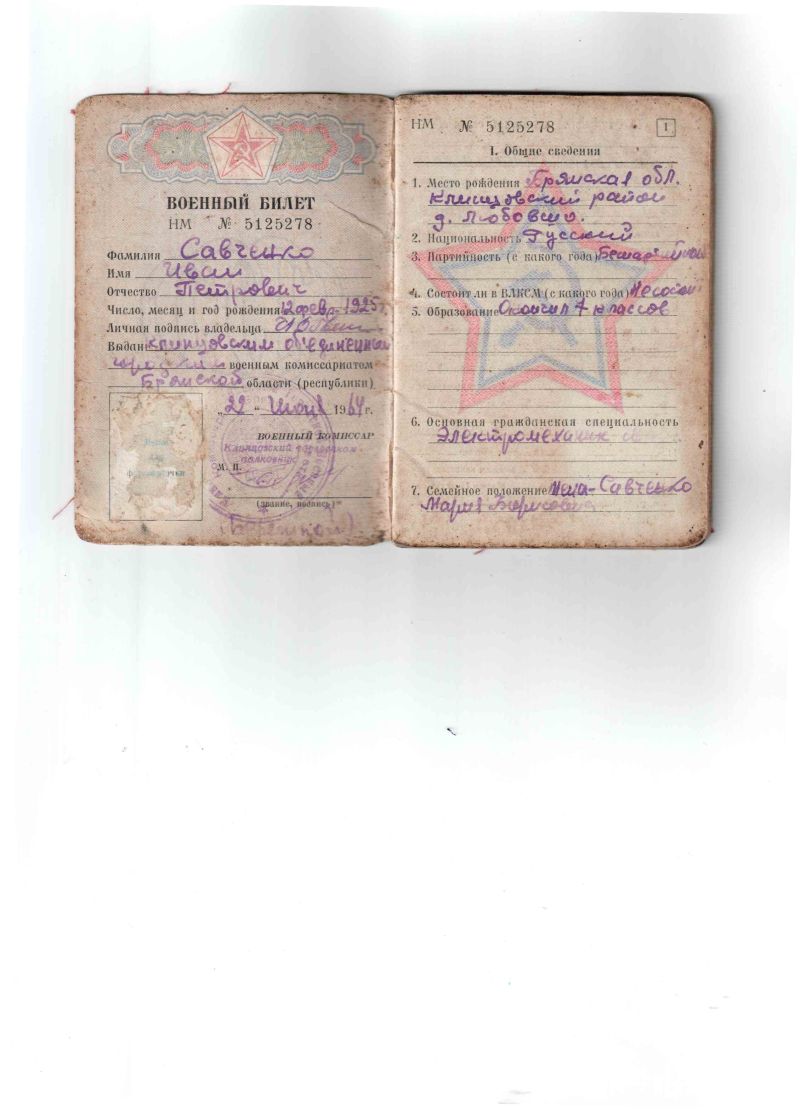 ВОЕННЫЙ БИЛЕТ
НМ № 5125278
Фамилия Савченко
Имя Иван
Отчество Петрович
Число, месяц и год рождения 12 февр. 1925 г.
Личная подпись владельца
Выдан Клинцовским объединенным
военным комиссариатом
Брянской области (республики)
„22" Июня 1964 г.
ВОЕННЫЙ КОМИССАР
Клинцовский горвоенком
полковник
М. П.
(звание, подпись)
Место
для
фотокарточки
НМ № 5125278 1
1. Общие сведения
1. Место рождения Брянская обл.
Клинцовский район
д. Любовшо.
2. Национальность Русский
3. Партийность (с какого года) Беспартийный
4. Состоит ли в ВЛКСМ (с какого года) Не состоит
5. Образование Окончил 7 классов
6. Основная гражданская специальность
Электромеханик
7. Семейное положение Жена-Савченко
Мария Борисовна